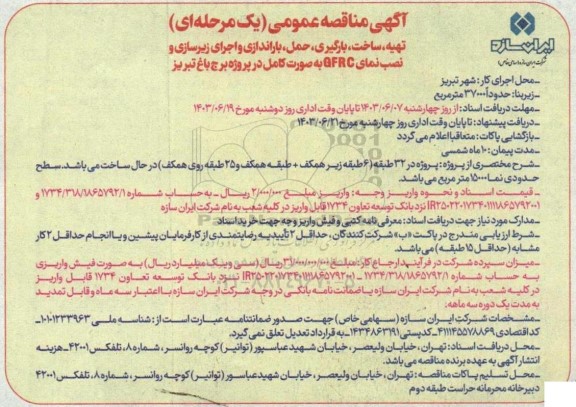 آگهی مناقصه عمومی (یک مرحله‌ای)
تهیه، ساخت، بارگیری، حمل، باراندازی و اجرای زیرسازی و
نصب نمای GFRC به صورت کامل در پروژه برج باغ تبریز
ایران سازه
ـ محل اجرای کار: شهر تبریز
ـ زیربنا: حدوداً ۳۷۰۰۰ مترمربع
ـ مهلت دریافت اسناد: از روز چهارشنبه ۱۴۰۳/۰۶/۰۷ تا پایان وقت اداری روز دوشنبه مورخ ۱۴۰۳/۰۶/۱۹
ـ دریافت پیشنهاد: تا پایان وقت اداری روز چهارشنبه مورخ ۱۴۰۳/۰۶/۲۱
ـ بازگشایی پاکات: متعاقبا اعلام می گردد
ـ مدت پیمان: ۱۰ ماه شمسی
ـ شرح مختصری از پروژه: پروژه در ۳۲ طبقه (۶ طبقه زیر همکف + طبقه همکف و ۲۵ طبقه روی همکف) در حال ساخت می باشد. سطح
حدودی نما ۱۵۰۰۰ متر مربع می باشد.
ـ قیمت اسناد و نحوه واریز وجه: واریز مبلغ ۲/۰۰۰/۰۰۰ ریال ـ به حساب شماره ۱۷۳۴/۳۱۸/۱۸۶۵۷۹۲/۱ و
نزد بانک توسعه تعاون ۱۷۳۴ قابل واریز در کلیه شعب به نام شرکت ایران سازه
ـ مدارک مورد نیاز جهت دریافت اسناد: معرفی نامه کتبی و فیش واریز وجه جهت خرید اسناد
ـ شرط ارزیابی مندرج در پاکت «ب» شرکت کنندگان: حداقل ۲ تأییدیه رضایتمندی از کارفرمایان پیشین و یا انجام حداقل ۲ کار
مشابه (حداقل ۱۵ طبقه) می باشد.
ـ میزان سپرده شرکت در فرآیند ارجاع کار: مبلغ ۳۱/۰۰۰/۰۰۰/۰۰۰ ریال (سی و یک میلیارد ریال) به صورت فیش واریزی
به حساب شماره ۱۷۳۴/۳۱۸/۱۸۶۵۷۹۲/۱ ـ نزد بانک توسعه تعاون ۱۷۳۴ قابل واریز
در کلیه شعب به نام شرکت ایران سازه یا ضمانت نامه بانکی در وجه شرکت ایران سازه با اعتبار سه ماه و قابل تمدید
به مدت یک دوره سه ماهه:
ـ مشخصات شرکت ایران سازه (سهامی خاص) جهت صدور ضمانتنامه عبارت است از: شناسه ملی ۱۰۱۰۱۲۳۳۹۶۳
کد اقتصادی ۴۱۱۱۴۵۵۷۸۸۶۹ ـ کدپستی ۱۴۳۴۸۶۳۱۹۱ ـ به قرارداد تعدیل تعلق نمی گیرد.
ـ محل دریافت اسناد: تهران، خیابان ولیعصر، خیابان شهید عباسپور (توانیر) کوچه روانسر، شماره ۸، تلفکس ۴۲۰۰۱ ـ هزینه
انتشار آگهی به عهده برنده مناقصه می باشد.
ـ محل تسلیم پاکات مناقصه: تهران، خیابان ولیعصر، خیابان شهید عباسپور (توانیر) کوچه روانسر، شماره ۸، تلفکس ۴۲۰۰۱
دبیرخانه محرمانه حراست طبقه دوم